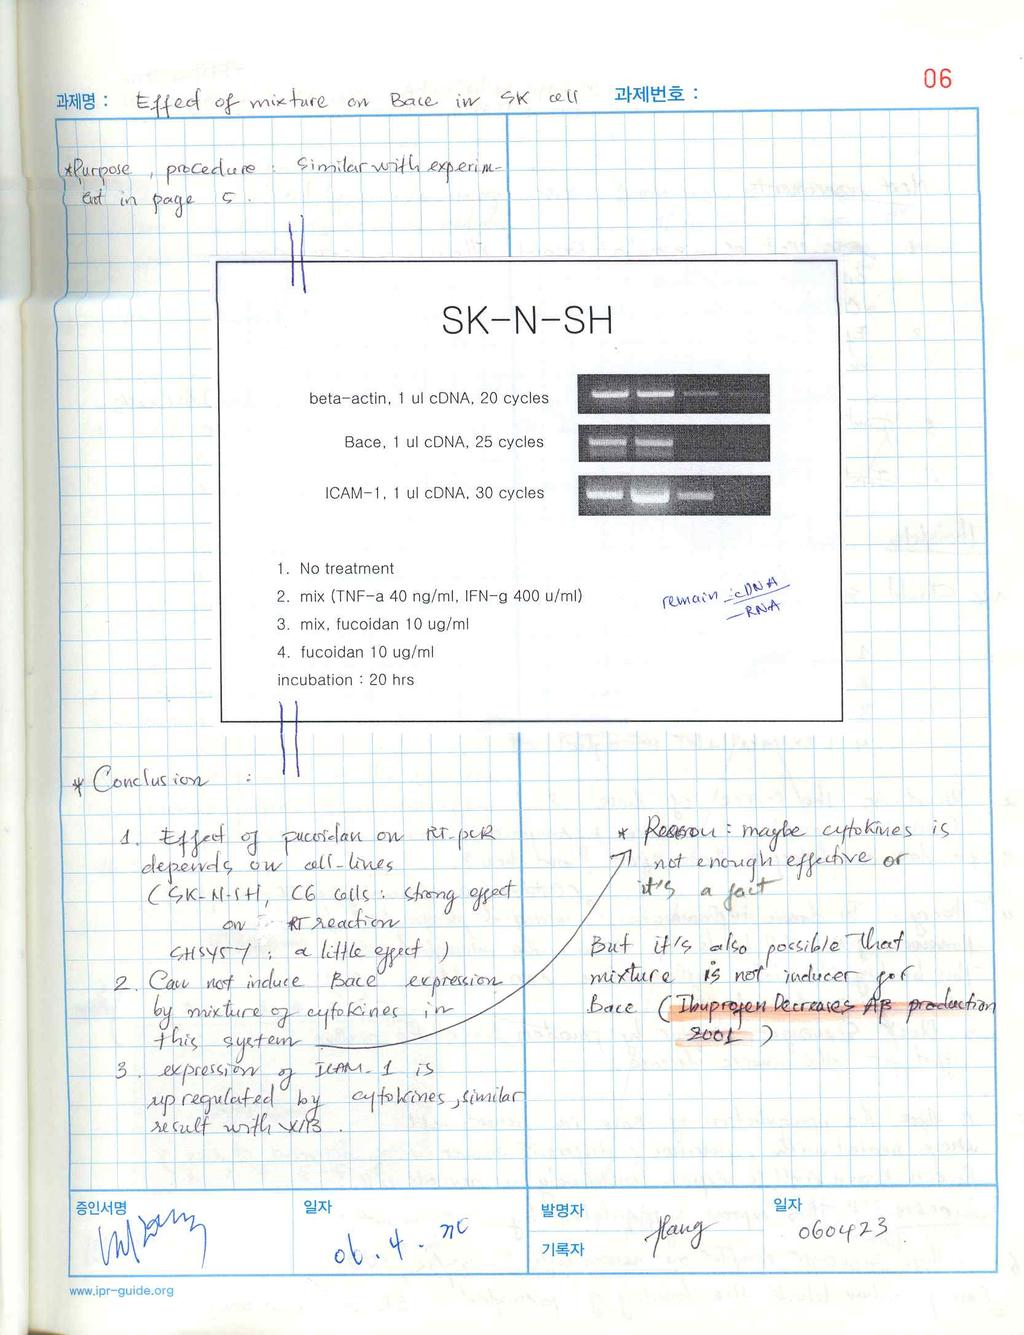 06
과제명 : Effect of mixture on Bace in SK cell 과제번호 :
*Purpose, procedure : Similar with experim-
ent in page 5.
SK-N-SH
beta-actin, 1 ul cDNA, 20 cycles
Bace, 1 ul cDNA, 25 cycles
ICAM-1, 1 ul cDNA, 30 cycles
1. No treatment
2. mix (TNF-a 40 ng/ml, IFN-g 400 u/ml)
3. mix, fucoidan 10 ug/ml
4. fucoidan 10 ug/ml
incubation : 20 hrs
remain - cDNA
- RNA
* Conclusion :
1. Effect of fucoidan on RT-pcR
depends on cell-lines
( SK-N-SH, C6 cells : strong effect
on RT reaction
SHSY5Y : a little effect )
2. Can not induce Bace expression
by mixture of cytokines in
this system
3. expression of ICAM-1 is
upregulated by cytokines, similar
result with
* Reason : maybe cytokines is
not enough effective or
it's a fact
But it's also possible that
mixture is not inducer for
Bace ( Ibuprofen Decreases Aβ production
2001 )
증인서명
일자
06. 4.
발명자
기록자
Hang
일자
060423.
www.ipr-guide.org